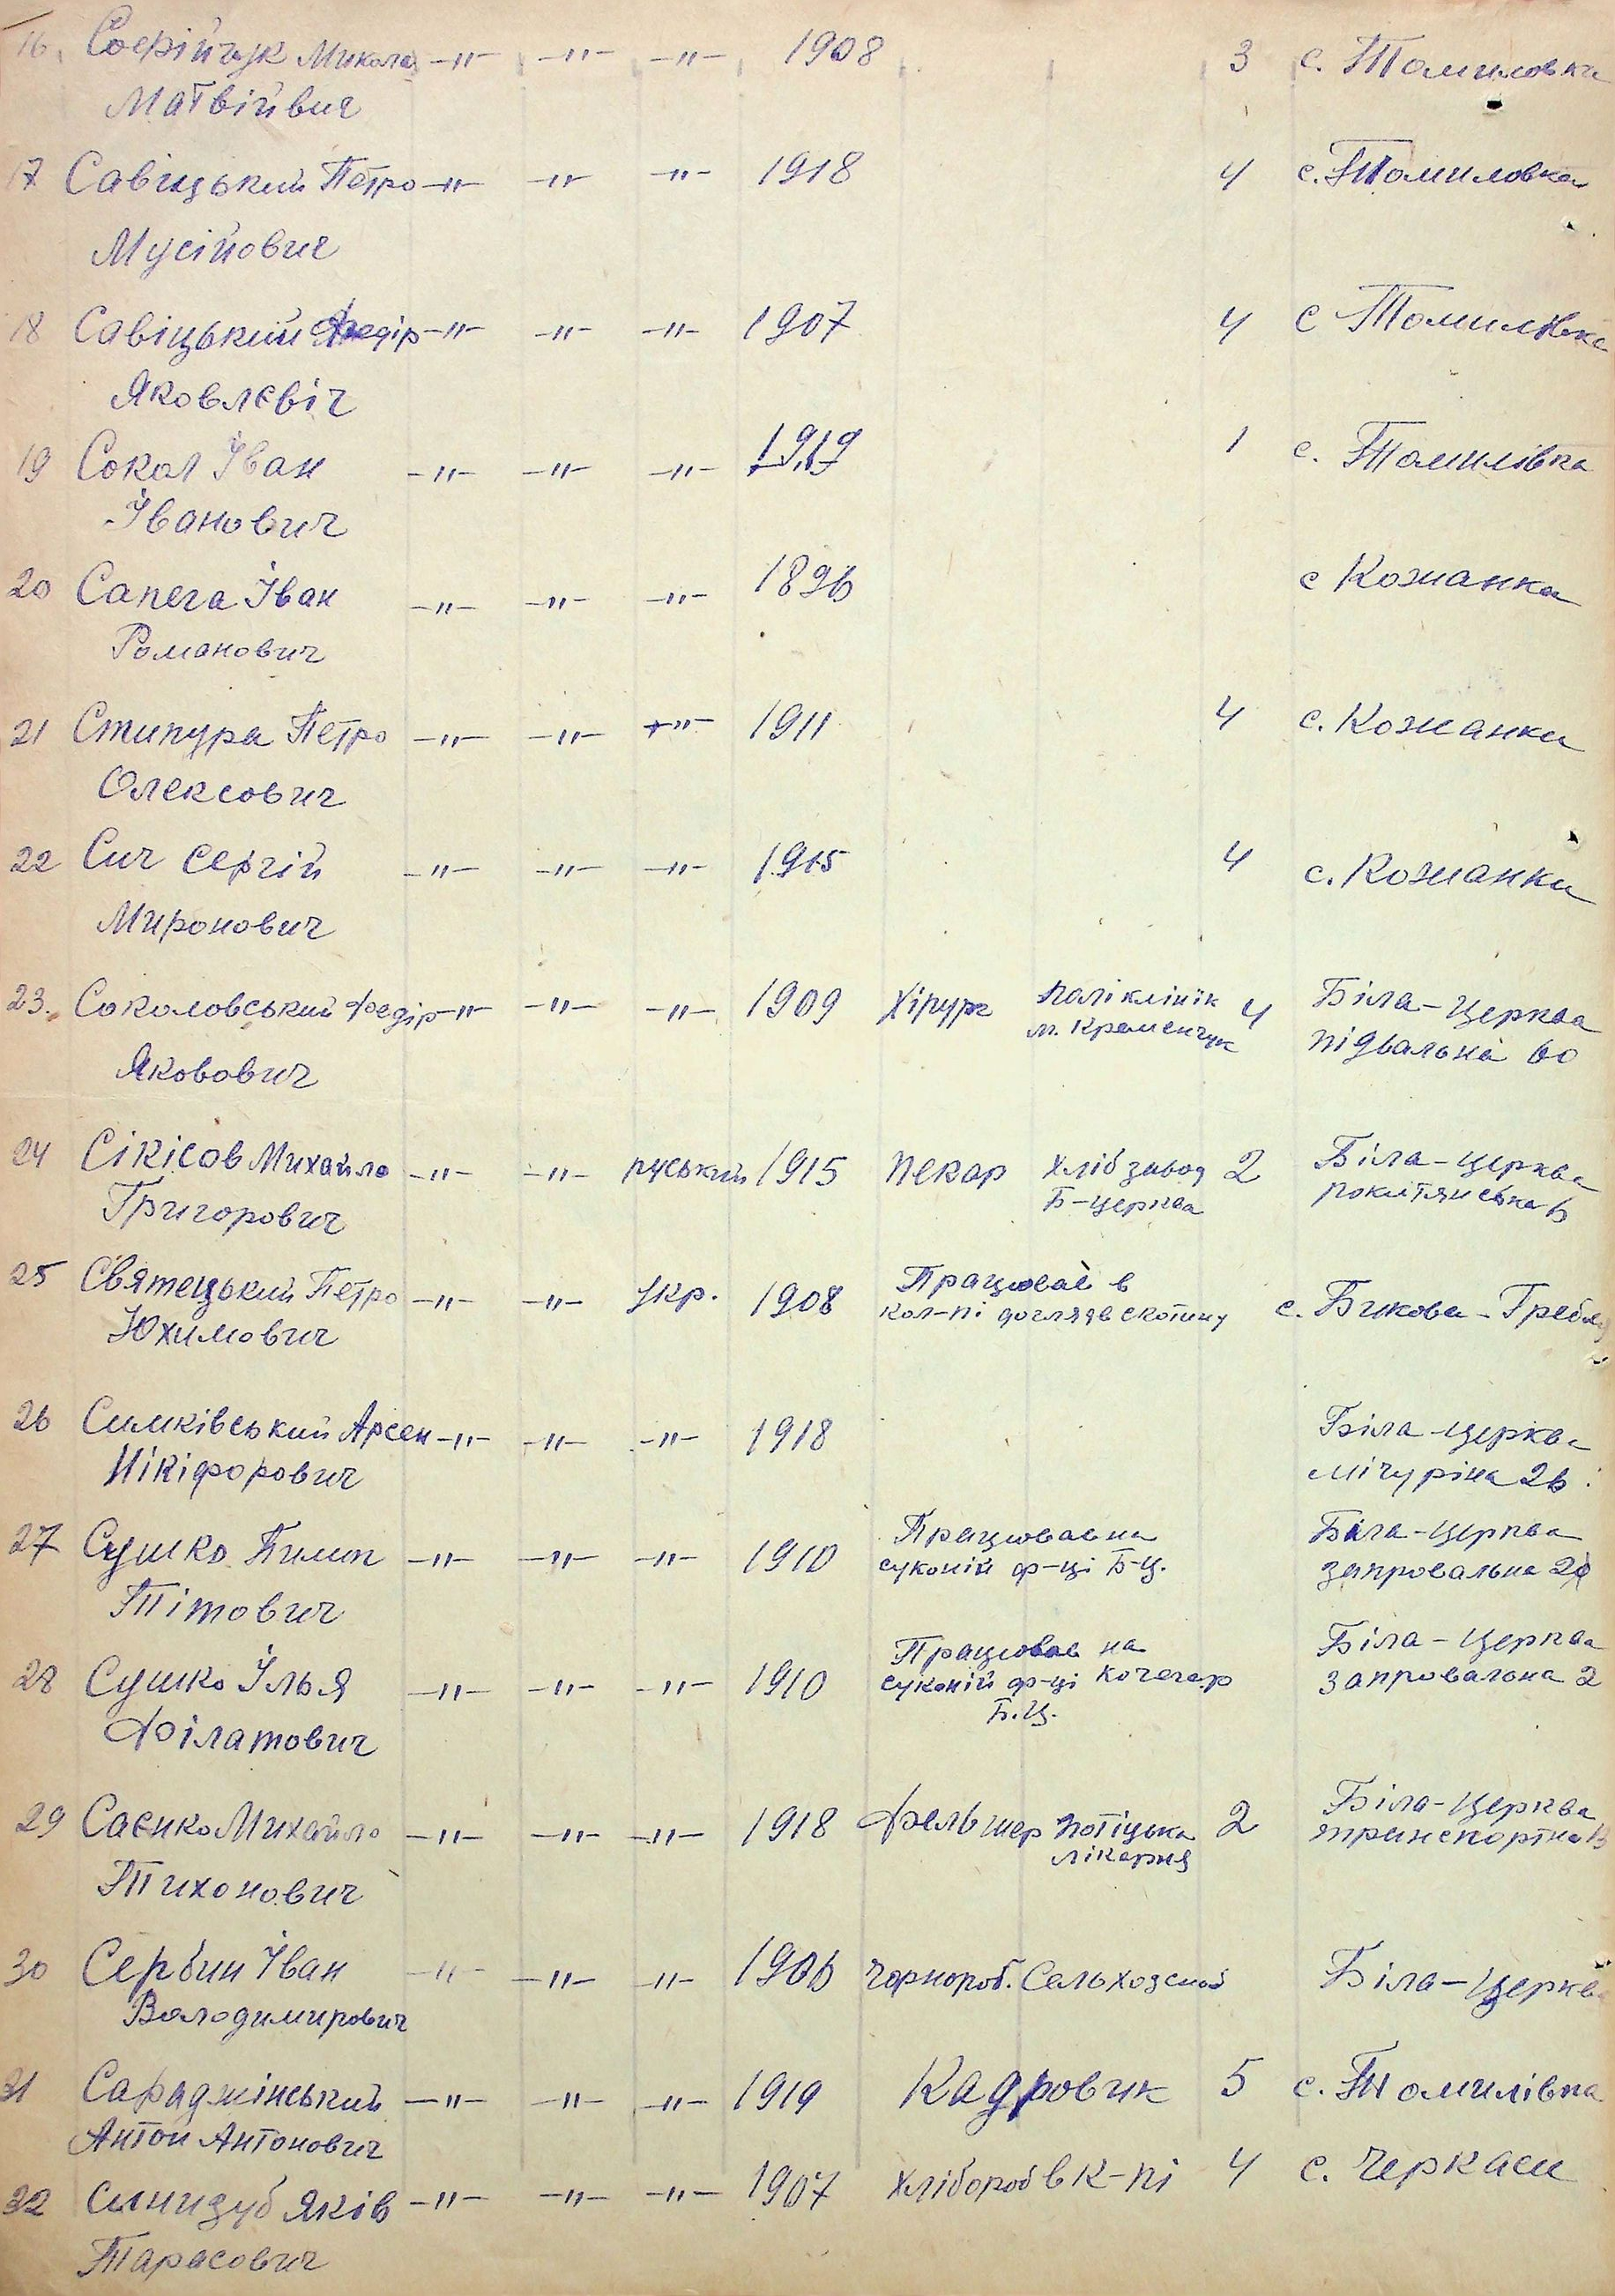 16. Софійчук Микола -"- -"- -"- 1908 3 с. Томиловка
Матвійвич
17 Савіцький Петро -"- -"- -"- 1918 4 с. Томиловка
Мусійович
18 Савіцький Федір -"- -"- -"- 1907 4 с Томилівка
Яковлєвіч
19 Сокол Іван -"- -"- -"- 1919 1 с. Томилівка
Іванович
20 Сапега Іван -"- -"- -"- 1896 с Кожанка
Романович
21 Стипура Петро -"- -"- -"- 1911 4 с. Кожанка
Олексович
22 Сич Сергій -"- -"- -"- 1915 4 с. Кожанка
Миронович
23. Соколовський Федір -"- -"- -"- 1909 Хірург паліклінік 4 Біла-Церква
м. Кременчук підвальна 60
Яковович
24 Сікісов Михайло -"- -"- руський 1915 пекар хлібзавод 2 Біла-Церква
Григорович Б-церква рокитянська 6
25 Святецький Петро -"- -"- укр. 1908 Працював в с. Бикова-Гребля
Юхимович кол-пі догляде скотину
26 Симківський Арсен -"- -"- -"- 1918 Біла-церква
Нікіфорович мічуріна 26
27 Сушко Пилип -"- -"- -"- 1910 Працював на Біла-церква
сукопій ф-ці Б-Ц. запровальна 20
Тітович
28 Сушко Ілья -"- -"- -"- 1910 Працював на Біла-Церква
суконій ф-ці кочегар запровальна 2
Філатович Б.Ц.
29 Саєнко Михайло -"- -"- -"- 1918 Фельшер потіцька 2 Біла-Церква
лікарня транспортна
Тихонович
30 Сербин Іван -"- -"- -"- 1906 чорнороб. Сельхозснаб Біла-Церква
Володимирович
31 Сараджінський -"- -"- -"- 1919 Кадровик 5 с. Томилівка
Антон Антонович
32 Синизуб Яків -"- -"- -"- 1907 хлібороб в к-пі 4 с. Черкаси
Тарасович